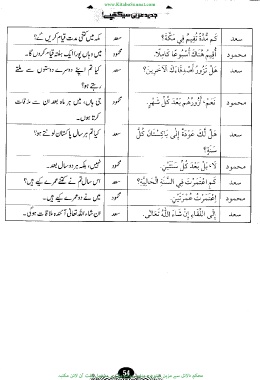 www.KitaboSunnat.com
جدید عربی سیکھیے!
سعد کَمْ مُدَّةً تُقِیْمُ فِی مَکَّةَ؟ سعد مکہ میں کتنی مدت قیام کریں گے؟
محمود أُقِیْمُ هُنَاكَ أُسْبُوْعًا کَامِلًا۔ محمود میں وہاں پورا ایک ہفتہ قیام کروں گا۔
سعد هَلْ تَزُوْرُ أَصْدِقَائَكَ الْآخَرِیْنَ؟ سعد کیا تم اپنے دوسرے دوستوں سے ملتے
رہتے ہو؟
محمود نَعَمْ، أَزُوْرُهُمْ بَعْدَ کُلِّ شَهْرٍ۔ محمود جی ہاں، میں ہر ماہ بعد ان سے ملاقات
کرتا ہوں۔
سعد هَلْ لَكَ عَوْدَةٌ إِلَی بَاکِسْتَانَ کُلَّ سعد کیا تم ہر سال پاکستان لوٹتے ہو؟
سَنَةٍ؟
محمود لَا، بَلْ بَعْدَ کُلِّ سَنَتَیْنِ محمود نہیں، بلکہ ہر دو سال بعد۔
سعد کَمِ اعْتَمَرْتَ فِی السَّنَةِ الْحَالِیَّةِ؟ سعد اس سال تم نے کتنے عمرے کیے ہیں؟
محمود اِعْتَمَرْتُ عُمْرَتَیْنِ۔ محمود میں نے دو عمرے کیے ہیں۔
سعد إِلَی اللِّقَاءِ إِنْ شَاءَ اللّٰهُ تَعَالَی۔ سعد ان شاء اللہ تعالی آئندہ ملاقات ہوگی۔
54